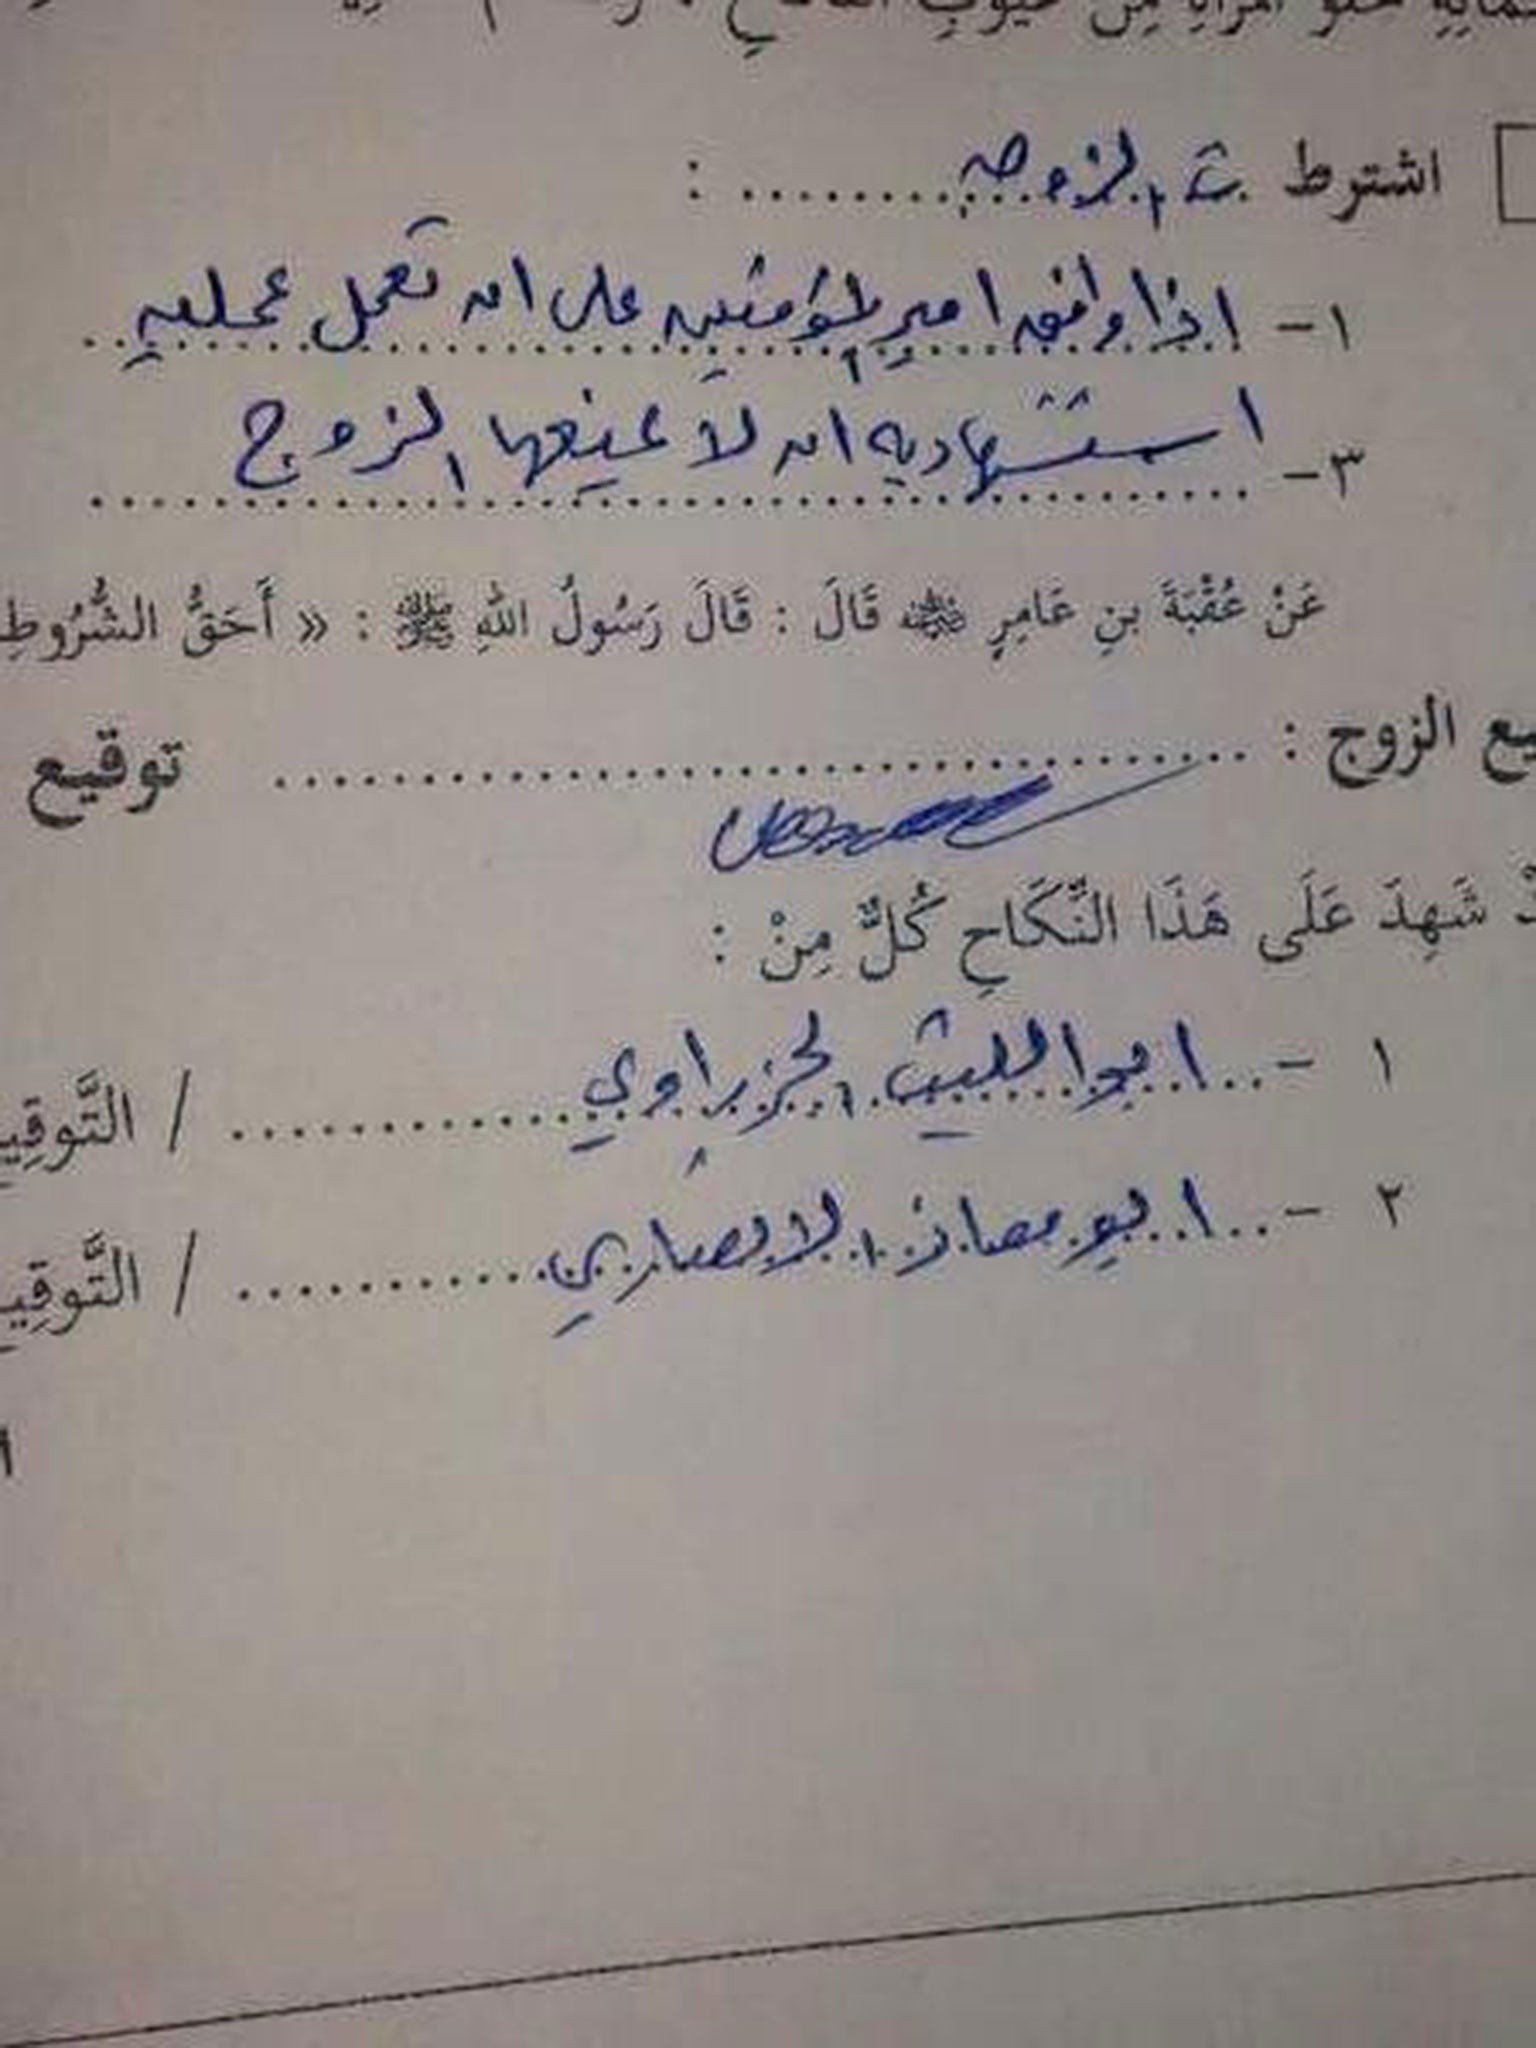 اشترطت الزوجه :
١- اذا وافق امير المؤمنين على ان تعمل عمليه
٣- استشهاديه ان لا يمنعها الزوج
عَنْ عُقْبَةَ بنِ عَامِرٍ ﷺ قَالَ : قَالَ رَسُولُ اللهِ ﷺ : « أَحَقُّ الشُّرُوطِ
الزوج : توقيع
شَهِدَ عَلَى هَذَا النِّكَاحِ كُلٌّ مِنْ :
١ - ابو الليث الجزراوي / التَّوقِيـ
٢ - ابو معاذ الانصاري / التَّوقِيـ